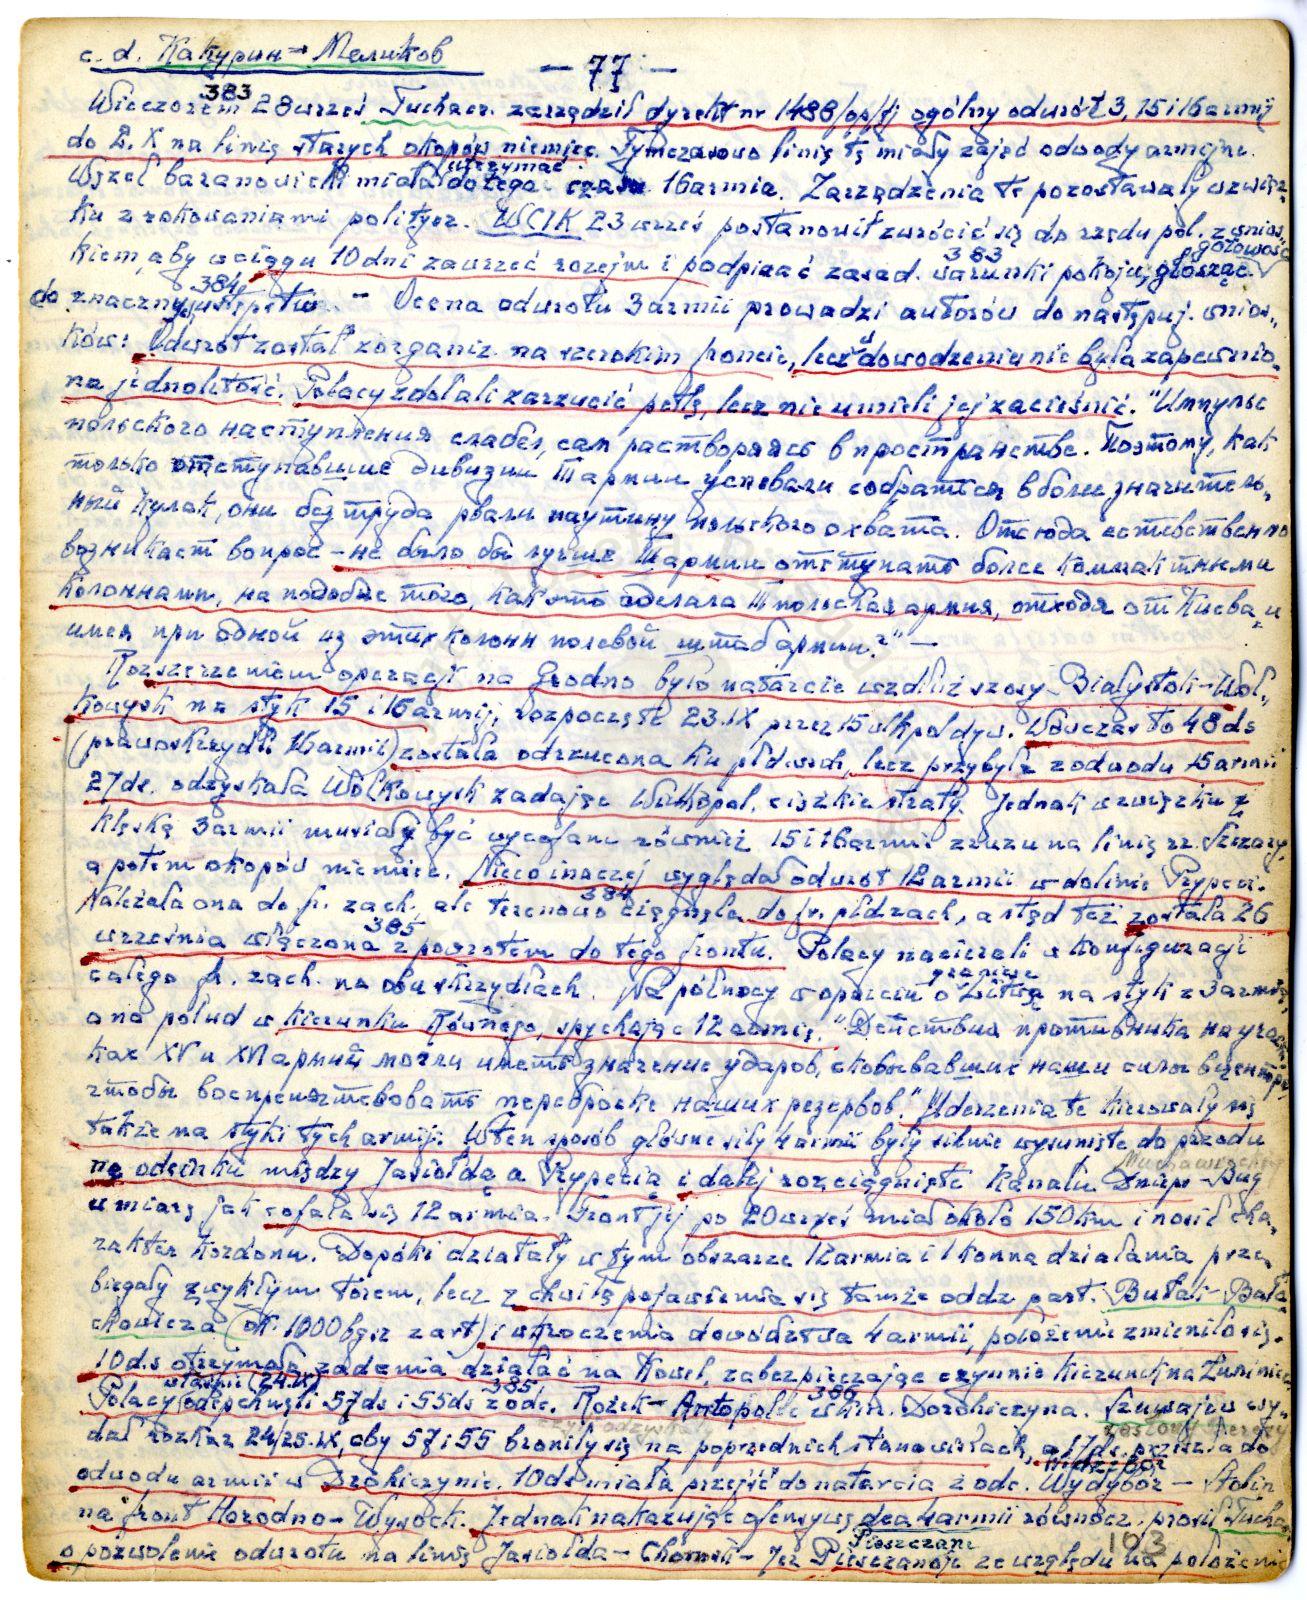 c. d. Какурин – Меликов
— 77 —
383
Wieczorem 28 wrześ Tuchacz. zarządził dyrekt nr 1488/op/tj ogólny odwrót 3, 15 i 16 armij
do 2.X na linię starych okopów niemiec. Tymczasowo linię tę miały zająć odwody armijne.
utrzymać
Węzeł baranowicki miała do tego czasu 16 armia. Zarządzenia te pozostawały w związ-
ku z rokowaniami polityez. WCIK 23 wrześ postanowił zwrócić się do rządu pol. z wnios-
383 gotowość
kiem, aby w ciągu 10 dni zawrzeć rozejm i podpisać zasad. warunki pokoju, głosząc
384
do znacznych ustępstw. – Ocena odwrotu 3 armii prowadzi autorów do następuj. wnios-
ków: Odwrót został zorganiz. na szerokim froncie, lecz dowodzeniu nie była zapewnio-
na jednolitość. Polacy zdołali zarzucić pętlę, lecz nie umieli jej zacieśnić. "Импульс
польского наступления слабел, сам растворяясь в пространстве. Поэтому, как
только отступавшие дивизии III армии успевали собраться в более значитель-
ный кулак, они без труда рвали паутину польского охвата. Отсюда естественно
возникает вопрос – не было бы лучше III армии отступать более компактными
колоннами, на подобие того, как это сделала III польская армия, отходя от Киева и
имея при одной из этих колонн полевой штаб армии?" —
Rozszerzeniem operacji na Grodno było natarcie wzdłuż szosy Białystok – Woł-
kowysk na styk 15 i 16 armij, rozpoczęte 23.IX przez 15 wlkpol dyw. Wówczas to 48 ds
(prawoskrzydł. 16 armii) została odrzucona ku płd wsch, lecz przybyła z odwodu 15 armii
27 ds. odzyskała Wołkowysk zadając Wielkopol. ciężkie straty. Jednak w związku z
klęską 3 armii musiały być wycofane również 15 i 16 armii zrazu na linię rz. Szczary,
a potem okopów niemiec. Nieco inaczej wyglądał odwrót 12 armii w dolinie Prypeci.
384
Należała ona do fr. zach. ale terenowo ciągnęła do fr. płd zach, a stąd też została 26
385
września włączona z powrotem do tego frontu. Polacy nacierali z konfiguracji
granicę
całego fr. zach. na obu skrzydłach. Na północy w oparciu o Litwą na styk z 3 armią,
a na połud w kierunku Równego, spychając 12 armię. "Действия противника на участ-
ках XV и XVI армий могли иметь значение ударов, сковывавших наши силы в центре
чтобы воспрепятствовать переброске наших резервов." Uderzenia te kierowały się
także na styki tych armij. W ten sposób główne siły 4 armii były silnie wysunięte do przodu
Muchawieckiego
na odcinku między Jasiołdą a Prypecią i dalej rozciągnięte Kanału Dniepr – Bug
w miarę jak cofała się 12 armia. Front jej po 20 wrześ miał około 150 km i nosił cha-
rakter kordonu. Dopóki działały w tym obszarze 12 armia i 1 konna działania prze-
biegały zwykłym torem, lecz z chwilą pojawienia się tamże oddz part. Bułak-Bała-
chowicza (ok. 1000 bgsz z art) i wkroczenia dowództwa 4 armii, położenie zmieniło się.
10 ds otrzymała zadania działać na Kowel, zabezpieczając czynnie kierunek na Łuniniec.
właśnie (24.IX) 385 386
Polacy odepchnęli 57 ds i 55 ds z odc. Rożek – Antopol w kier. Drohiczyna. Szuwajew wy-
dał rozkaz 24/25.IX, aby 57 i 55 broniły się na poprzednich stanowiskach, a 17 ds. przeszła do
odwodu armii w Drohiczynie. 10 ds miała przejść do natarcia z odc. Wydybor – Stolin
na front Horodno – Wysock. Jednak nakazując ofensywę dca 4 armii równocz. prosił Tucha-
Pieszczane 103
o pozwolenie odwrotu na linię Jasiołda – Chomsk – Jez Pieszczanoje ze względu na położenie